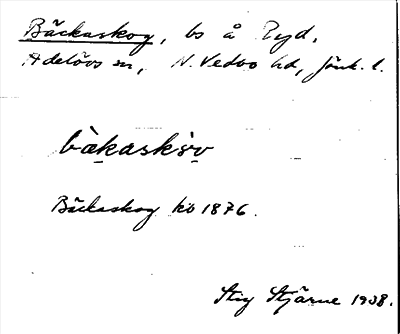 Bäckaskog, bs å Ryd,
Adelövs sn, N. Vedbo hd, Jönk. l.
bàkaskóv
Bäckaskog kb 1876.
Stig Stjärne 1938.